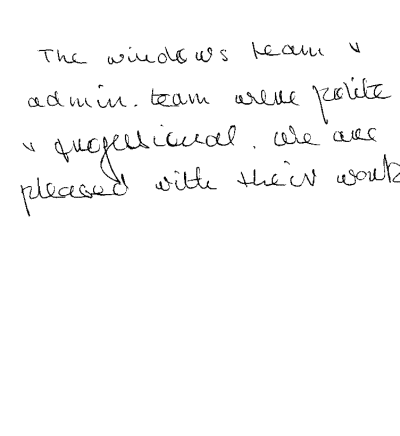 The windows team &
admin. team were polite
& professional. We are
pleased with their work